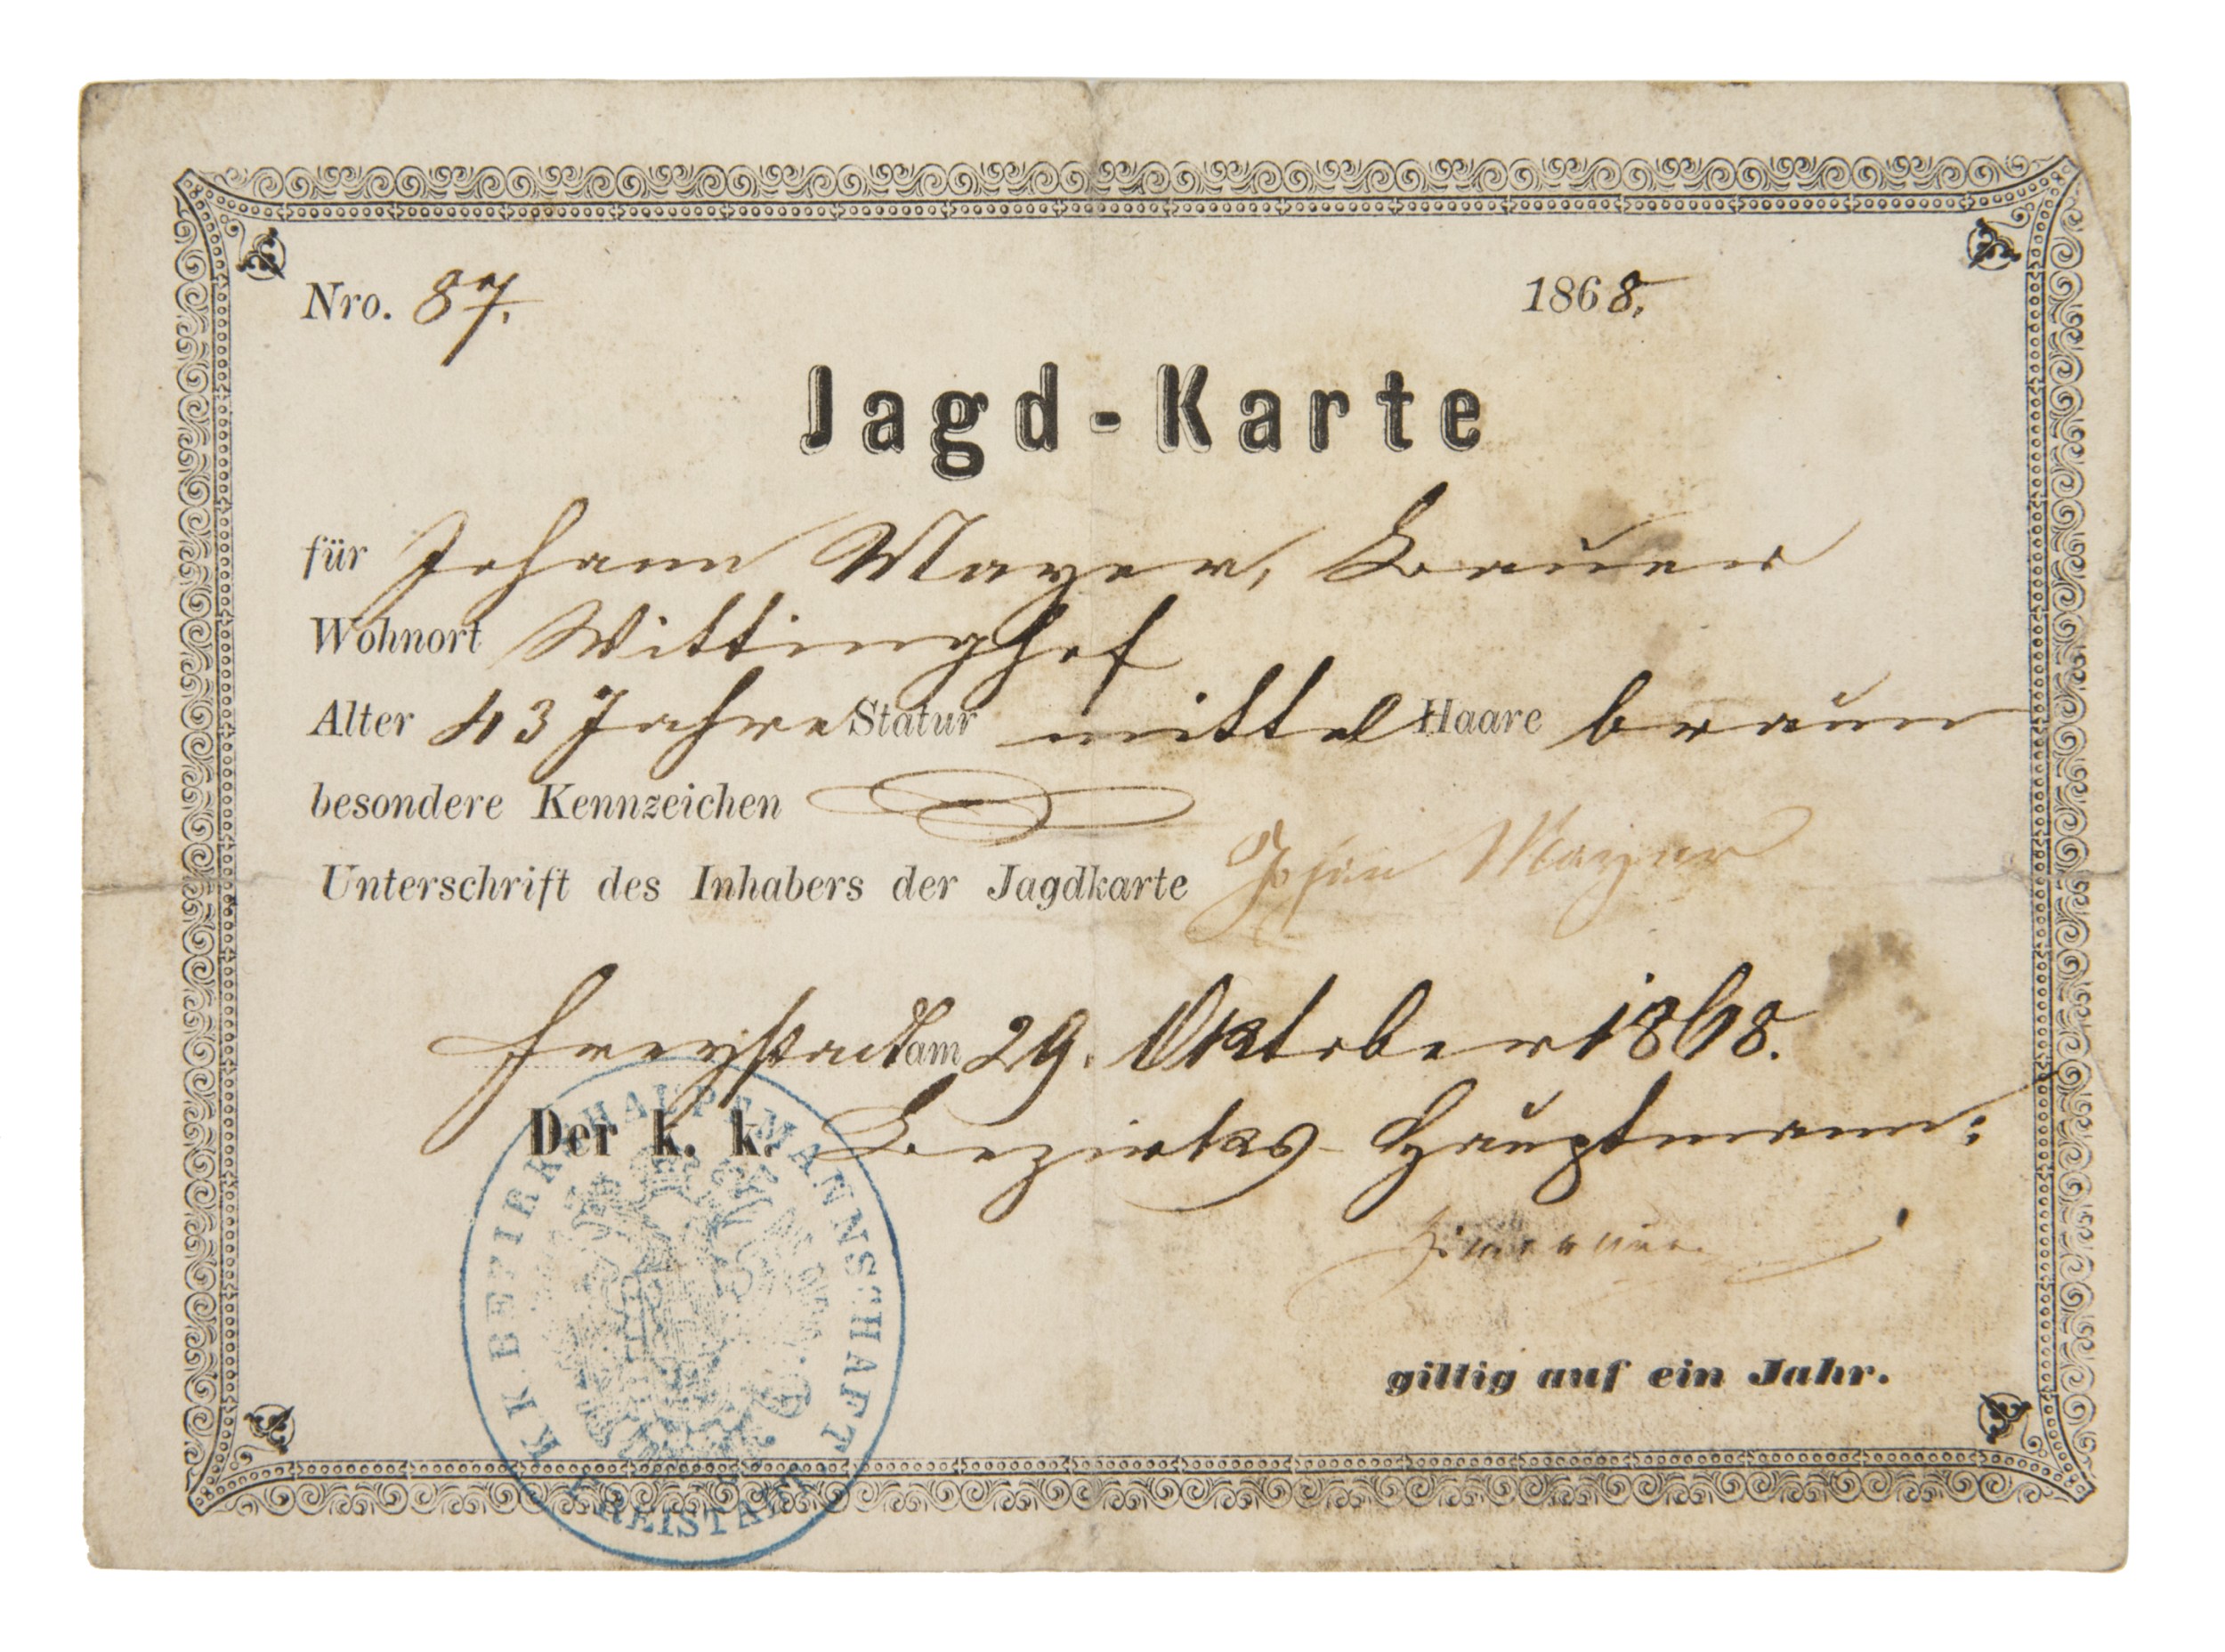 Nro. 87. 1868.
Jagd-Karte
für Johann Mayer, Bauer
Wohnort Wittinghof
Alter 43 Jahre Statur mittel Haare braun
besondere Kennzeichen
Unterschrift des Inhabers der Jagdkarte Johan Mayer
Freystadt am 29. Oktober 1868.
Der k. k. Bezirks-Hauptmann:
giltig auf ein Jahr.
K.K. BEZIRKSHAUPTMANNSCHAFT
FREISTADT